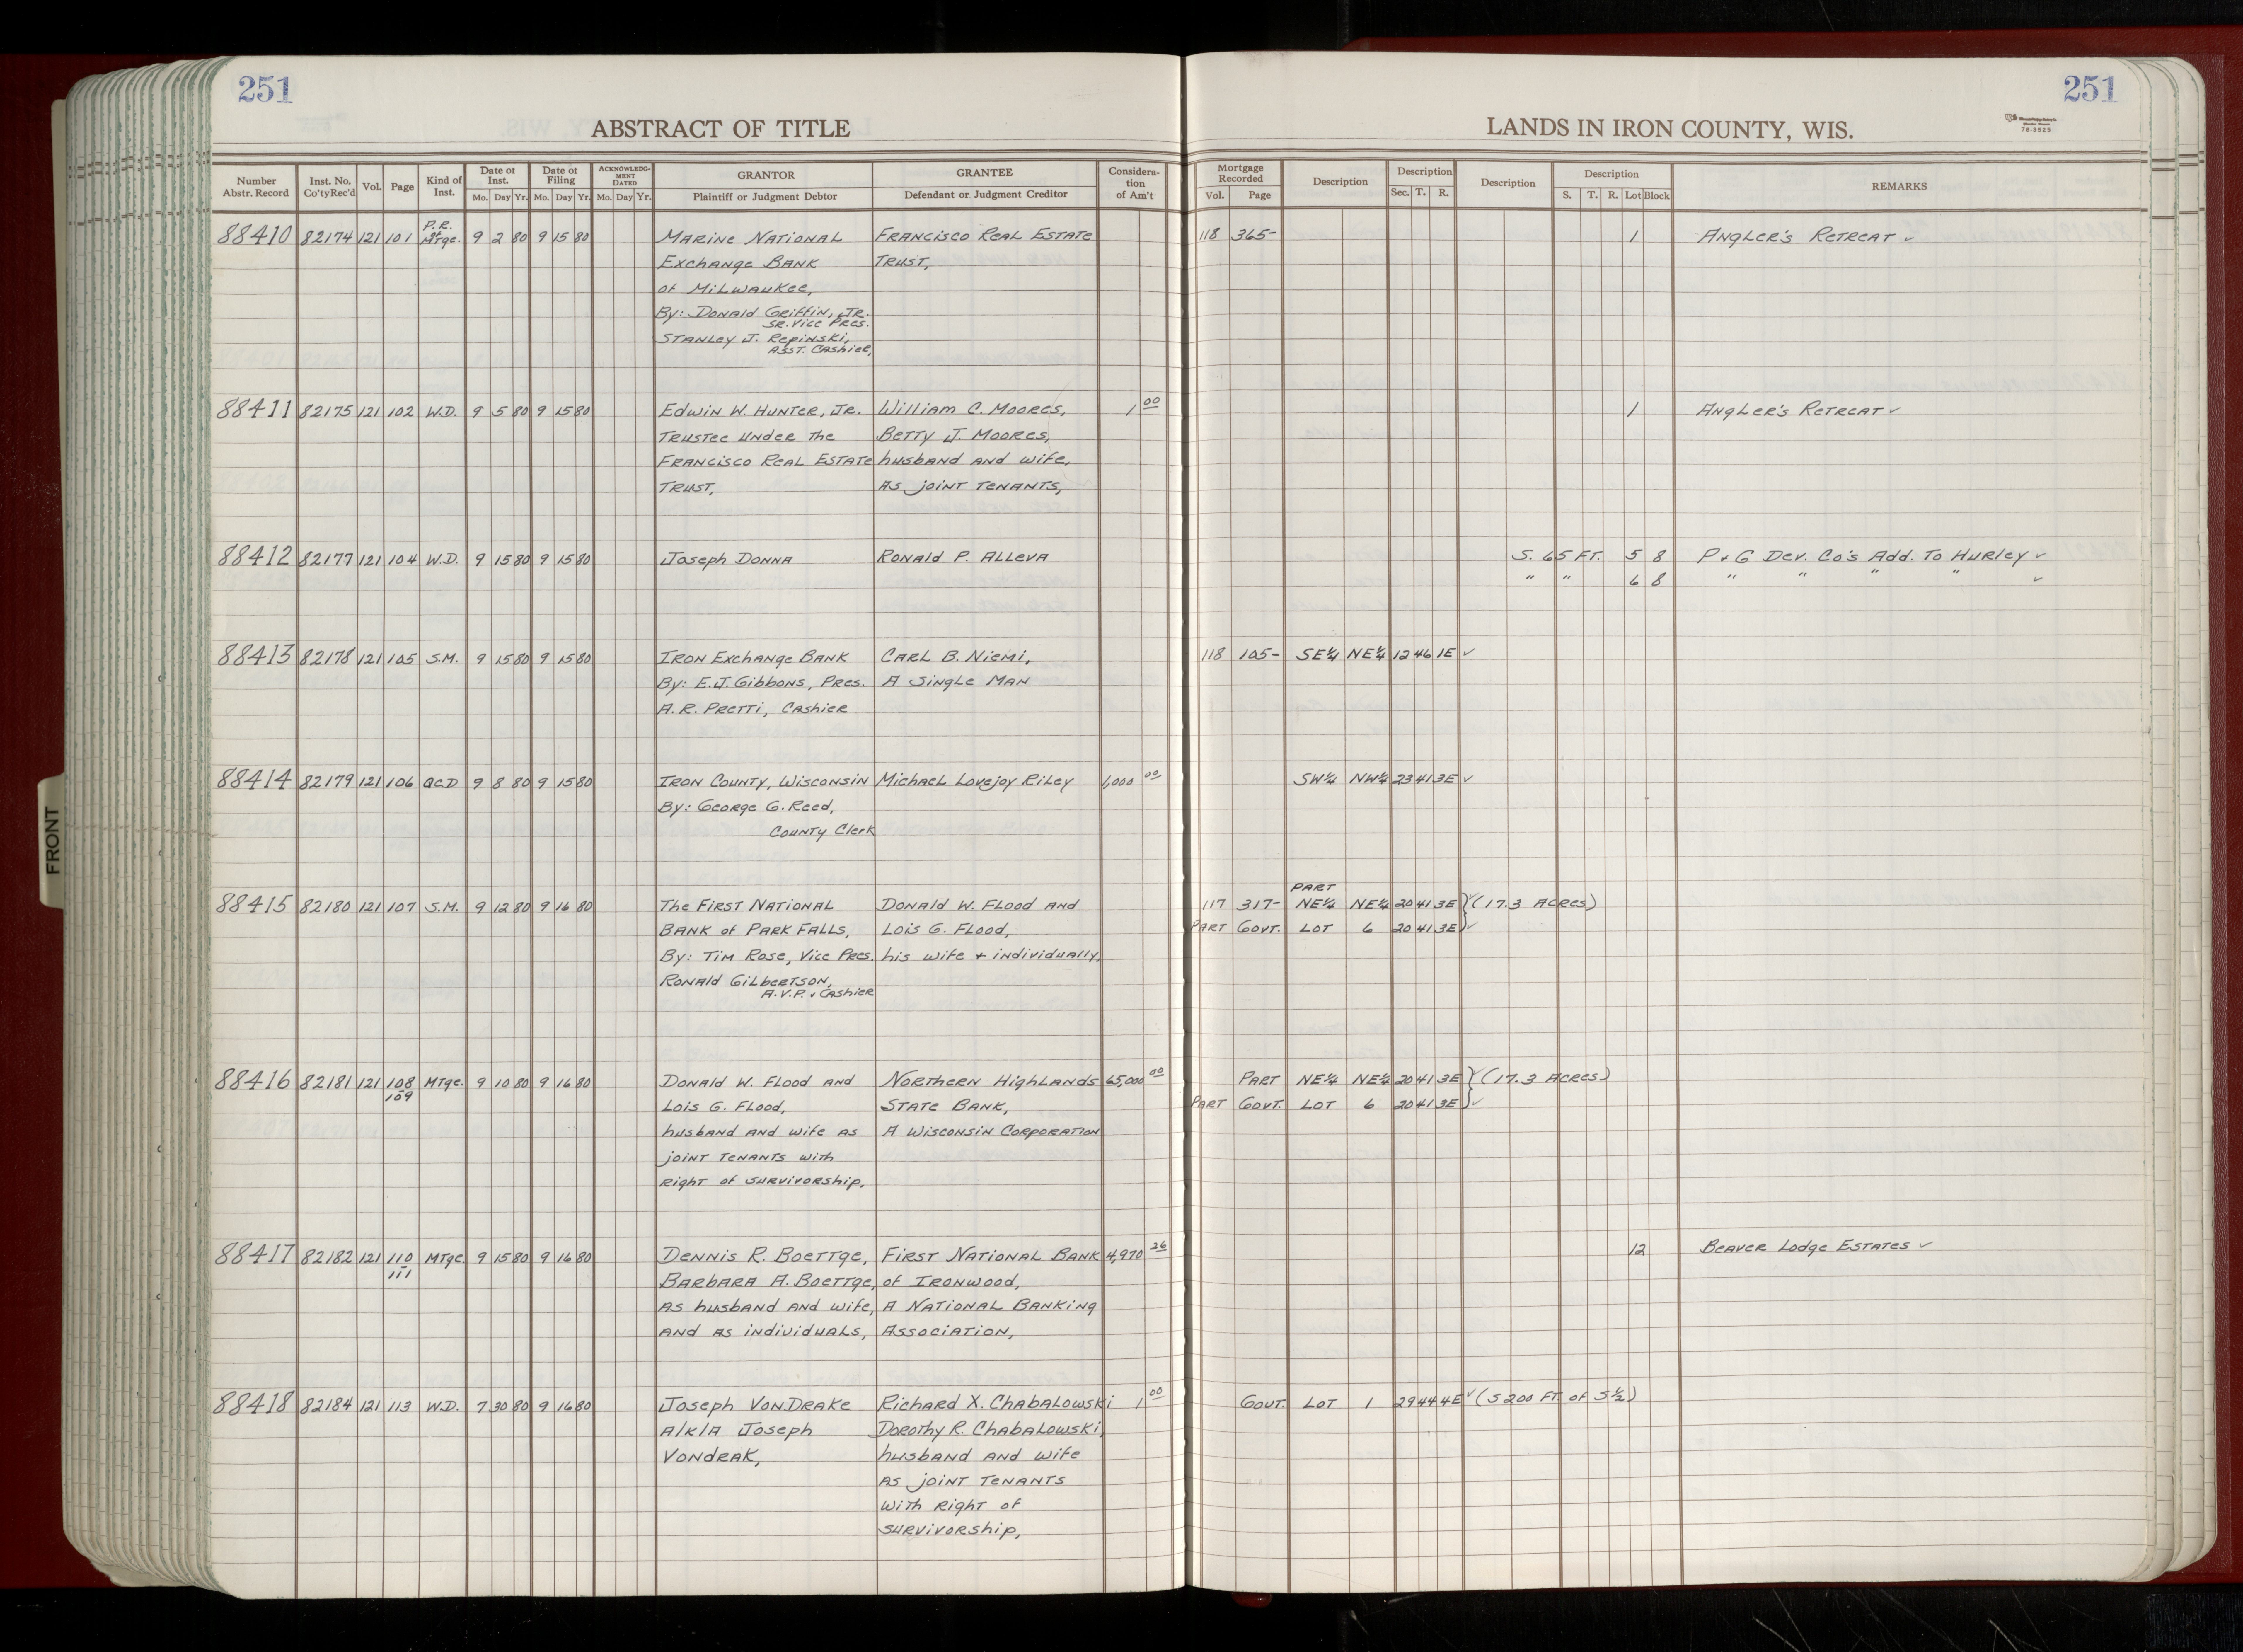 251
251
ABSTRACT OF TITLE
LANDS IN IRON COUNTY, WIS.
78-3525
Number Abstr. Record | Inst. No. Co'ty Rec'd | Vol. | Page | Kind of Inst. | Date of Inst. Mo. Day Yr. | Date of Filing Mo. Day Yr. | ACKNOWLEDGMENT DATED Mo. Day Yr. | GRANTOR Plaintiff or Judgment Debtor | GRANTEE Defendant or Judgment Creditor | Consideration of Am't | Mortgage Recorded Vol. Page | Description | Description Sec. T. R. | Description | Description S. T. R. Lot Block | REMARKS
88410 82174 121 101 P.R. of Mtge. 9 2 80 9 15 80 Marine National Francisco Real Estate 118 365- 1 Angler's Retreat ✓
Exchange Bank Trust,
of Milwaukee,
By: Donald Griffin, Jr.
Sr. Vice Pres.
Stanley J. Repinski,
Asst. Cashier,
88411 82175 121 102 W.D. 9 5 80 9 15 80 Edwin W. Hunter, Jr. William C. Moores, 1 00 1 Angler's Retreat ✓
Trustee under the Betty J. Moores,
Francisco Real Estate husband and wife,
Trust, as joint tenants,
88412 82177 121 104 W.D. 9 15 80 9 15 80 Joseph Donna Ronald P. Alleva S. 65 FT. 5 8 P + G Dev. Co's Add. To Hurley ✓
" " 6 8 " " " " ✓
88413 82178 121 105 S.M. 9 15 80 9 15 80 Iron Exchange Bank Carl B. Niemi, 118 105- SE¼ NE¼ 12 46 1E ✓
By: E.J. Gibbons, Pres. A Single Man
A.R. Pretti, Cashier
88414 82179 121 106 QCD 9 8 80 9 15 80 Iron County, Wisconsin Michael Lovejoy Riley 1,000 00 SW¼ NW¼ 23 41 3E ✓
By: George G. Reed,
County Clerk
PART
88415 82180 121 107 S.M. 9 12 80 9 16 80 The First National Donald W. Flood and 117 317- NE¼ NE¼ 20 41 3E }✓ (17.3 Acres)
Bank of Park Falls, Lois G. Flood, Part Govt. Lot 6 20 41 3E }✓
By: Tim Rose, Vice Pres. his wife + individually,
Ronald Gilbertson,
A.V.P. & Cashier
88416 82181 121 108 - 109 Mtge. 9 10 80 9 16 80 Donald W. Flood and Northern Highlands 65,000 00 Part NE¼ NE¼ 20 41 3E }✓ (17.3 Acres)
Lois G. Flood, State Bank, Part Govt. Lot 6 20 41 3E }✓
husband and wife as A Wisconsin Corporation
joint tenants with
right of survivorship,
88417 82182 121 110 - 111 Mtge. 9 15 80 9 16 80 Dennis R. Boettge, First National Bank 4,970 26 12 Beaver Lodge Estates ✓
Barbara A. Boettge, of Ironwood,
as husband and wife, A National Banking
and as individuals, Association,
88418 82184 121 113 W.D. 7 30 80 9 16 80 Joseph VonDrake Richard X. Chabalowski 1 00 Govt. Lot 1 29 44 4E ✓ (S 200 FT. of S½)
A/K/A Joseph Dorothy R. Chabalowski,
Vondrak, husband and wife
as joint tenants
with right of
survivorship,
FRONT